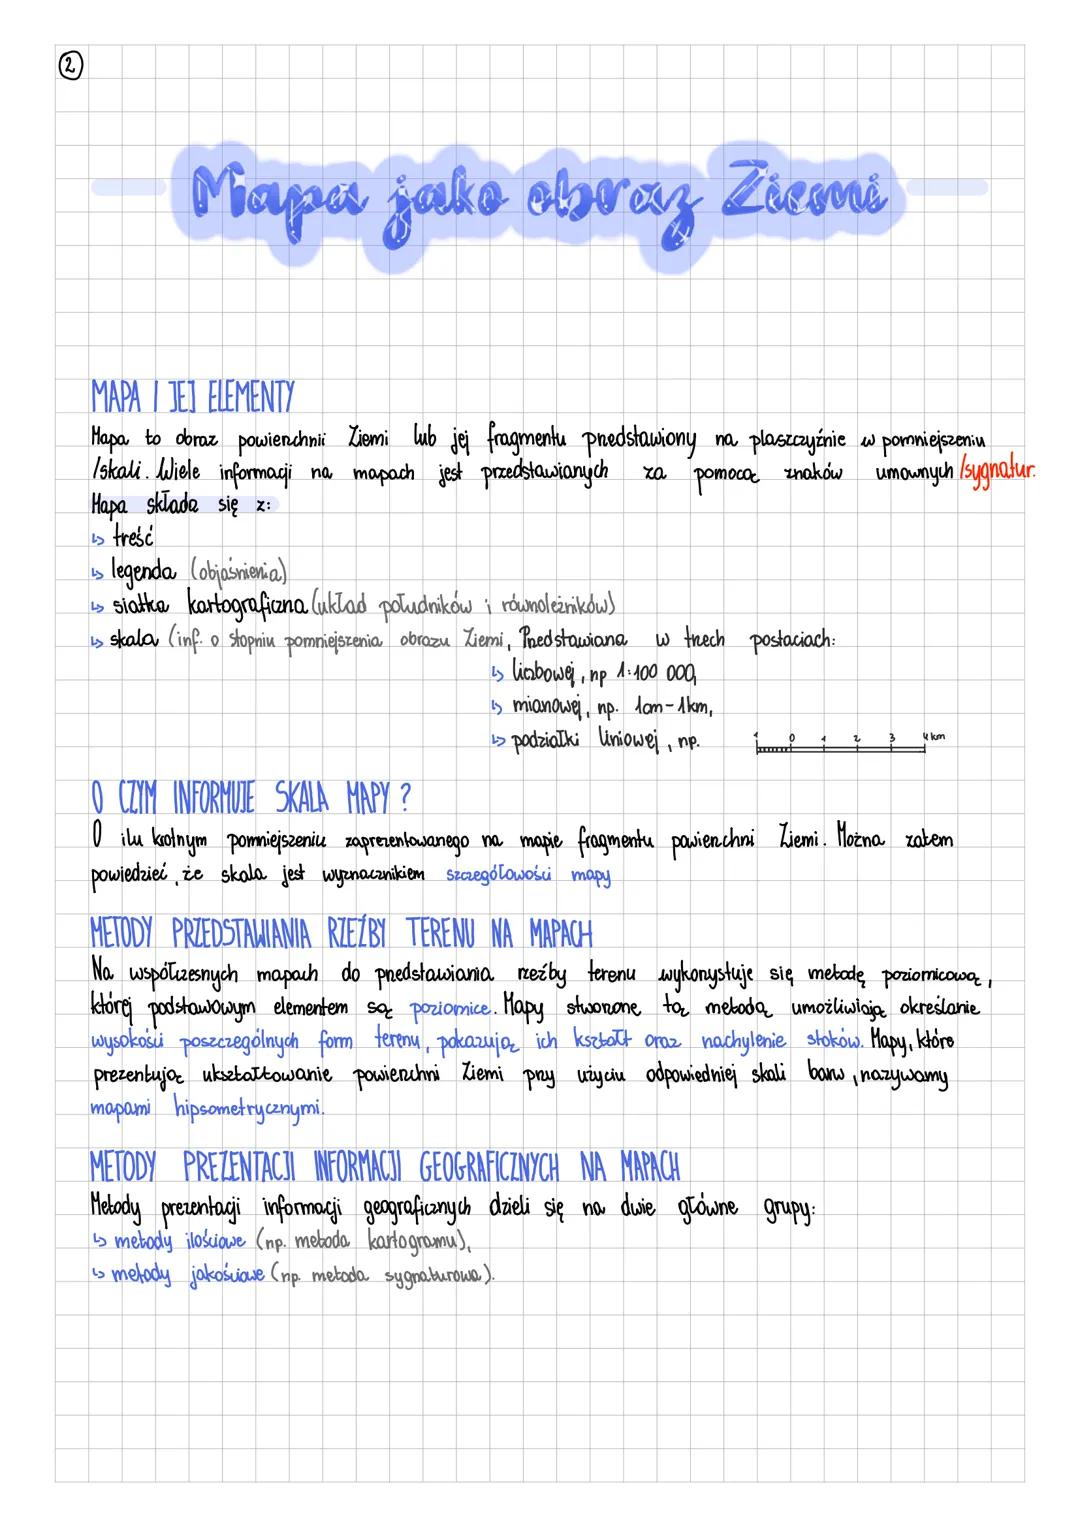 2
Mapa jako obraz Ziemi
MAPA I JEJ ELEMENTY
Mapa to obraz powierzchnii Ziemi lub jej fragmentu przedstawiony na płaszczyźnie w pomniejszeniu
/skali. Wiele informacji na mapach jest przedstawianych za pomocą znaków umownych /sygnatur.
Mapa składa się z:
↳ treść
↳ legenda (objaśnienia)
↳ siatka kartograficzna (układ południków i równoleżników)
↳ skala (inf. o stopniu pomniejszenia obrazu Ziemi, Przedstawiana w trzech postaciach:
↳ liczbowej, np 1:100 000,
↳ mianowej, np. 1cm-1km,
↳ podziałki liniowej, np. 1 0 1 2 3 4 km
O CZYM INFORMUJE SKALA MAPY?
O ilu krotnym pomniejszeniu zaprezentowanego na mapie fragmentu powierzchni Ziemi. Można zatem
powiedzieć, że skala jest wyznacznikiem szczegółowości mapy
METODY PRZEDSTAWIANIA RZEŹBY TERENU NA MAPACH
Na współczesnych mapach do przedstawiania rzeźby terenu wykorzystuje się metodę poziomicową,
której podstawowym elementem są poziomice. Mapy stworzone tą metodą umożliwiają określanie
wysokości poszczególnych form terenu, pokazując ich kształt oraz nachylenie stoków. Mapy, które
prezentują ukształtowanie powierzchni Ziemi przy użyciu odpowiedniej skali barw, nazywamy
mapami hipsometrycznymi.
METODY PREZENTACJI INFORMACJI GEOGRAFICZNYCH NA MAPACH
Metody prezentacji informacji geograficznych dzieli się na dwie główne grupy:
↳ metody ilościowe (np. metoda kartogramu),
↳ metody jakościowe (np. metoda sygnaturowa).